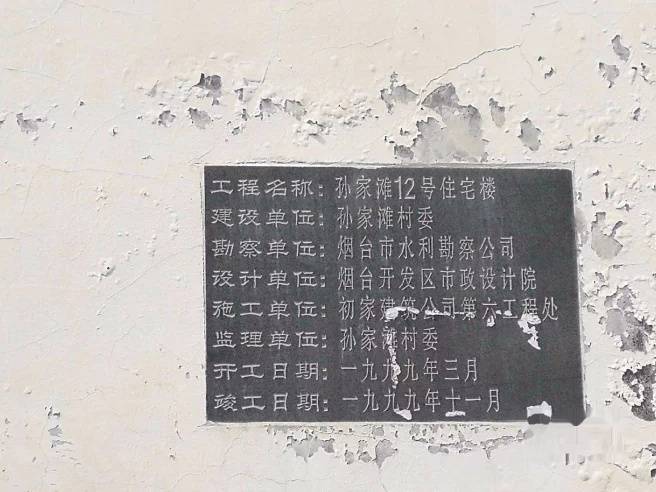 工程名称:孙家滩12号住宅楼
建设单位:孙家滩村委
勘察单位:烟台市水利勘察公司
设计单位:烟台开发区市政设计院
施工单位:初家建筑公司第六工程处
监理单位:孙家滩村委
开工日期:一九九九年三月
竣工日期:一九九九年十一月